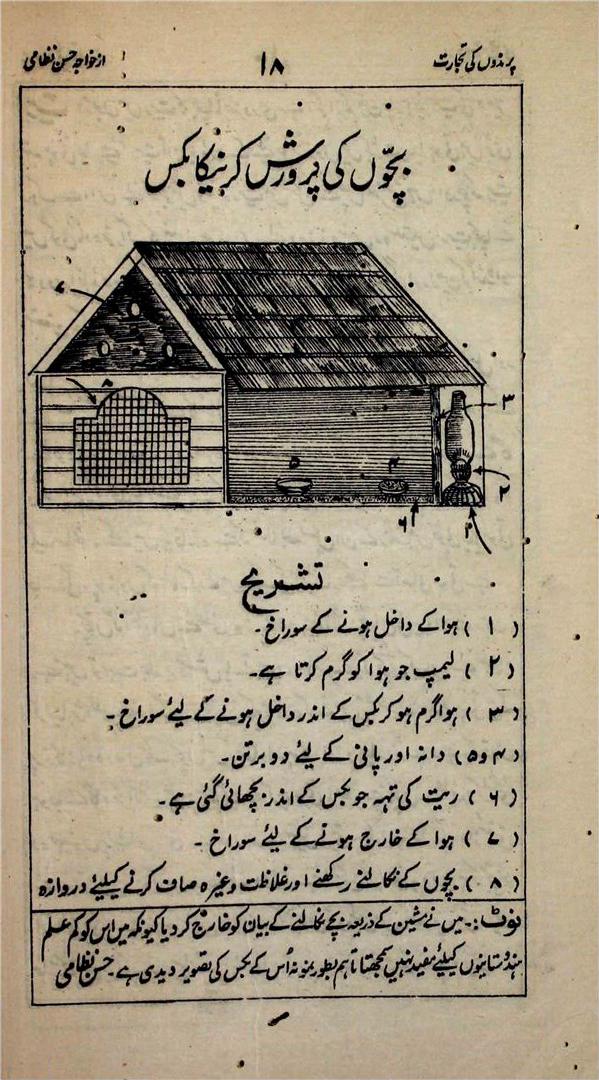 پرندوں کی تجارت ۱۸ از خواجہ حسن نظامی
بچّوں کی پرورش کرنیکا بکس
۷
۸
۳
۵ ۴
۲
۶ ۱
تشریح
(۱) ہوا کے داخل ہونے کے سوراخ۔
(۲) لیمپ جو ہوا کو گرم کرتا ہے۔
(۳) ہوا گرم ہو کر بکس کے اندر داخل ہونے کے لیئے سوراخ۔
(۴ و ۵) دانہ اور پانی کے لیئے دو برتن۔
(۶) ریت کی تہہ جو بکس کے اندر بچھائی گئی ہے۔
(۷) ہوا کے خارج ہونے کے لیئے سوراخ۔
(۸) بچوں کے نکالنے رکھنے اور غلاظت وغیرہ صاف کرنے کیلیئے دروازہ
نوٹ:۔ میں نے مشین کے ذریعہ بچے نکالنے کے بیان کو خارج کر دیا کیونکہ میں اس کو کم علم
ہندوستانیوں کیلیئے مفید نہیں سمجھتا تاہم بطور نمونہ اُس کے بکس کی تصویر دیدی ہے۔ حسن نظامی